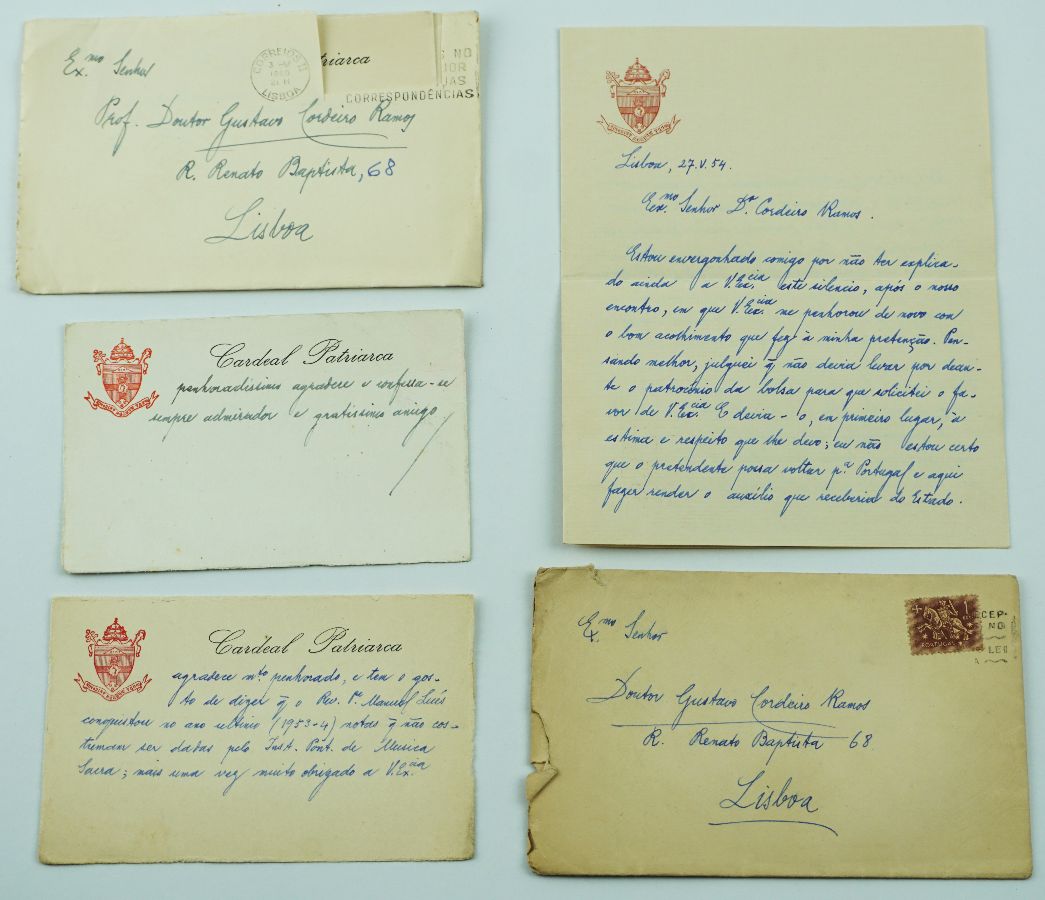 Ex.mo Senhor
CORREIOS
LISBOA
triarca
S NO
IOR
UAS
CORRESPONDÊNCIAS
Prof. Doutor Gustavo Cordeiro Ramos
R. Renato Baptista, 68
Lisboa
Cardeal Patriarca
penhoradissimo agradece e confessa-se
sempre admirador e gratissimo amigo
Cardeal Patriarca
agradece m.to penhorado, e tem o gos-
to de dizer q̃ o Rev. P.e Manuel Luís
conquistou no ano ultimo (1953-4) notas q̃ não cos-
tumam ser dadas pelo Inst. Pont. de Musica
Sacra; mais uma vez muito obrigado a V.Ex.cia
Lisboa, 27.V.54.
Ex.mo Senhor D.r Cordeiro Ramos.
Estou envergonhado comigo por não ter explica-
do ainda a V.Ex.cia este silencio, após o nosso
encontro, em que V.Ex.cia me penhorou de novo com
o bom acolhimento que fez à minha pretenção. Pen-
sando melhor, julguei q̃ não devia levar por dean-
te o patrocínio da bolsa para que solicitei o fa-
vor de V.Ex.cia E devia-o, em primeiro lugar, à
estima e respeito que lhe devo; eu não estou certo
que o pretendente possa voltar p.a Portugal e aqui
fazer render o auxílio que receberia do Estado.
Ex.mo Senhor
1
PORTUGAL
CEP
NO
Doutor Gustavo Cordeiro Ramos
R. Renato Baptista 68
Lisboa